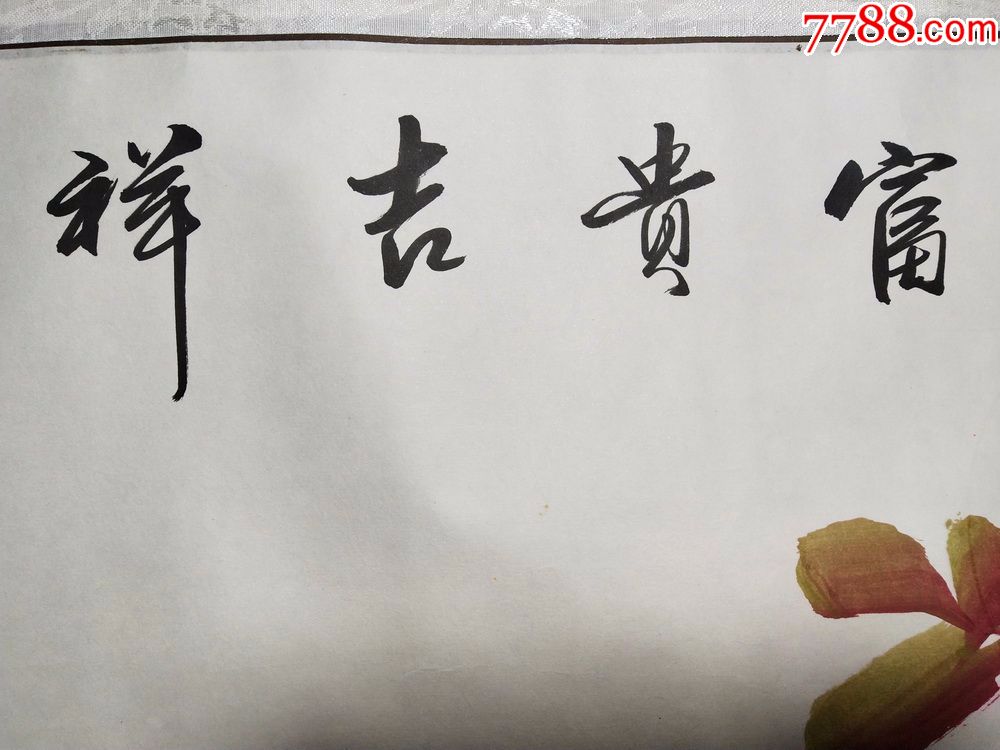 7788.com
富貴吉祥